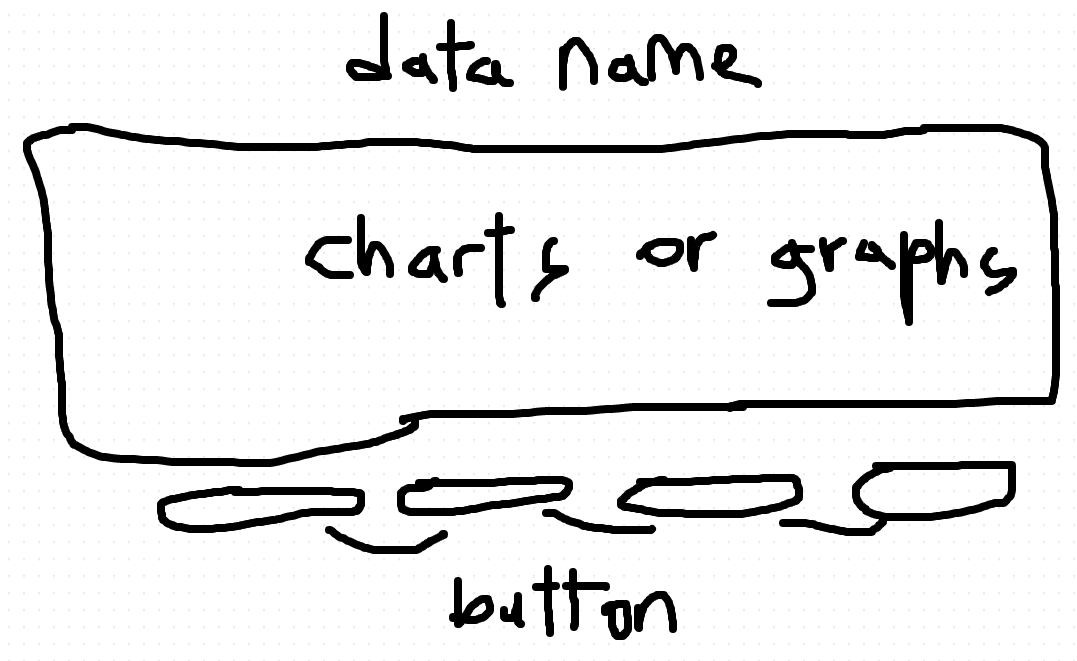 data name
charts or graphs
button